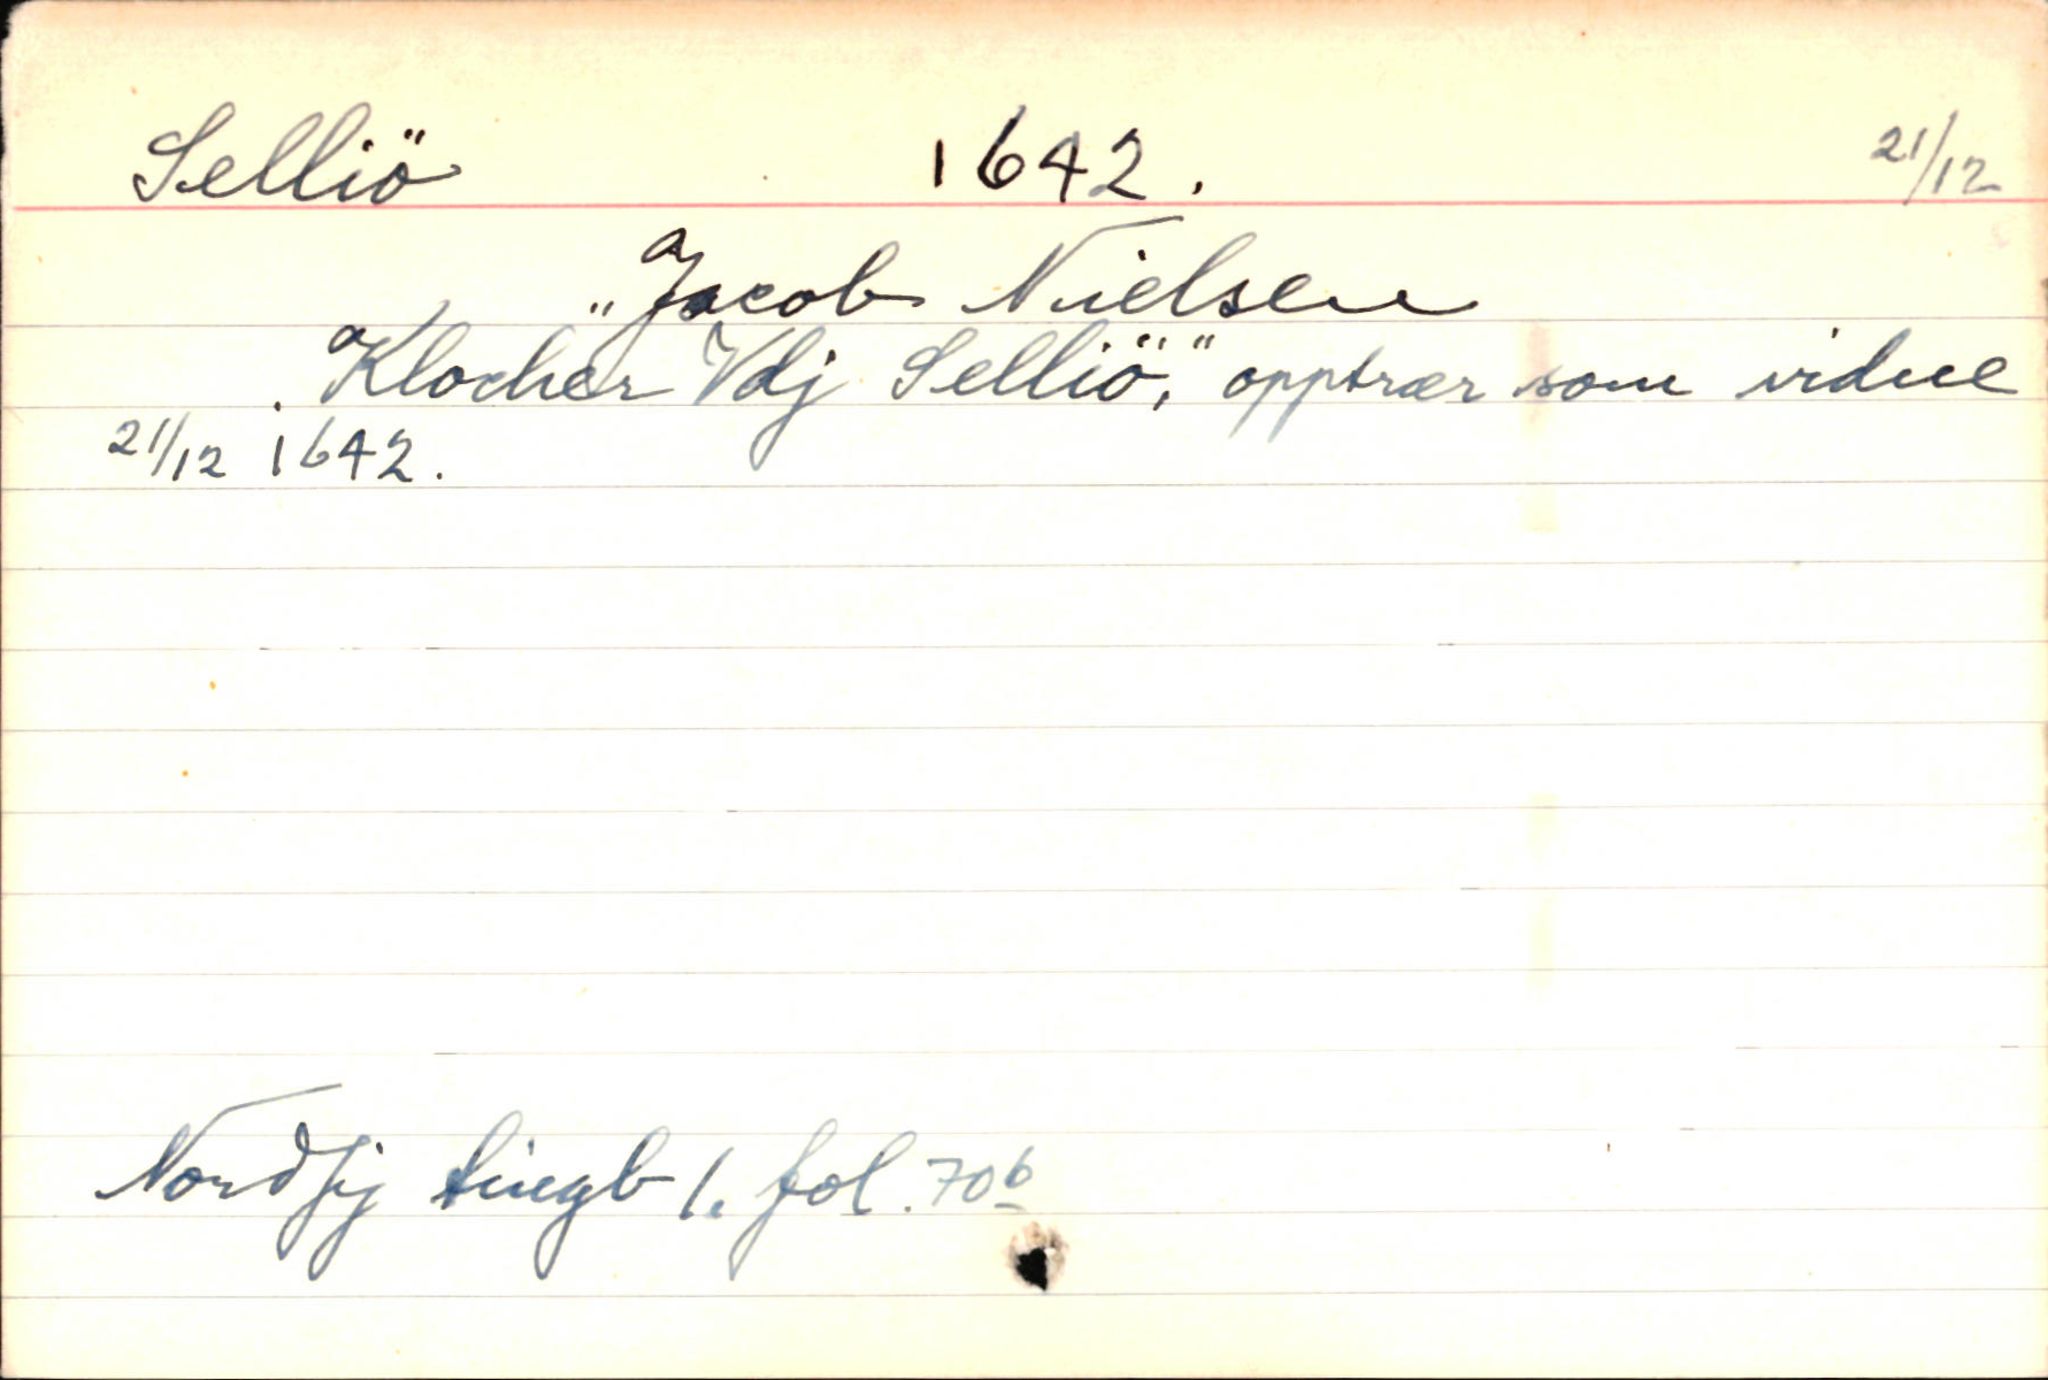 Selliö 1642. 21/12
„Jacob Nielsen
Klocher Vdj Selliö," opptrær som vidne
21/12 1642.
Nordfj tingb 1. fol. 70b